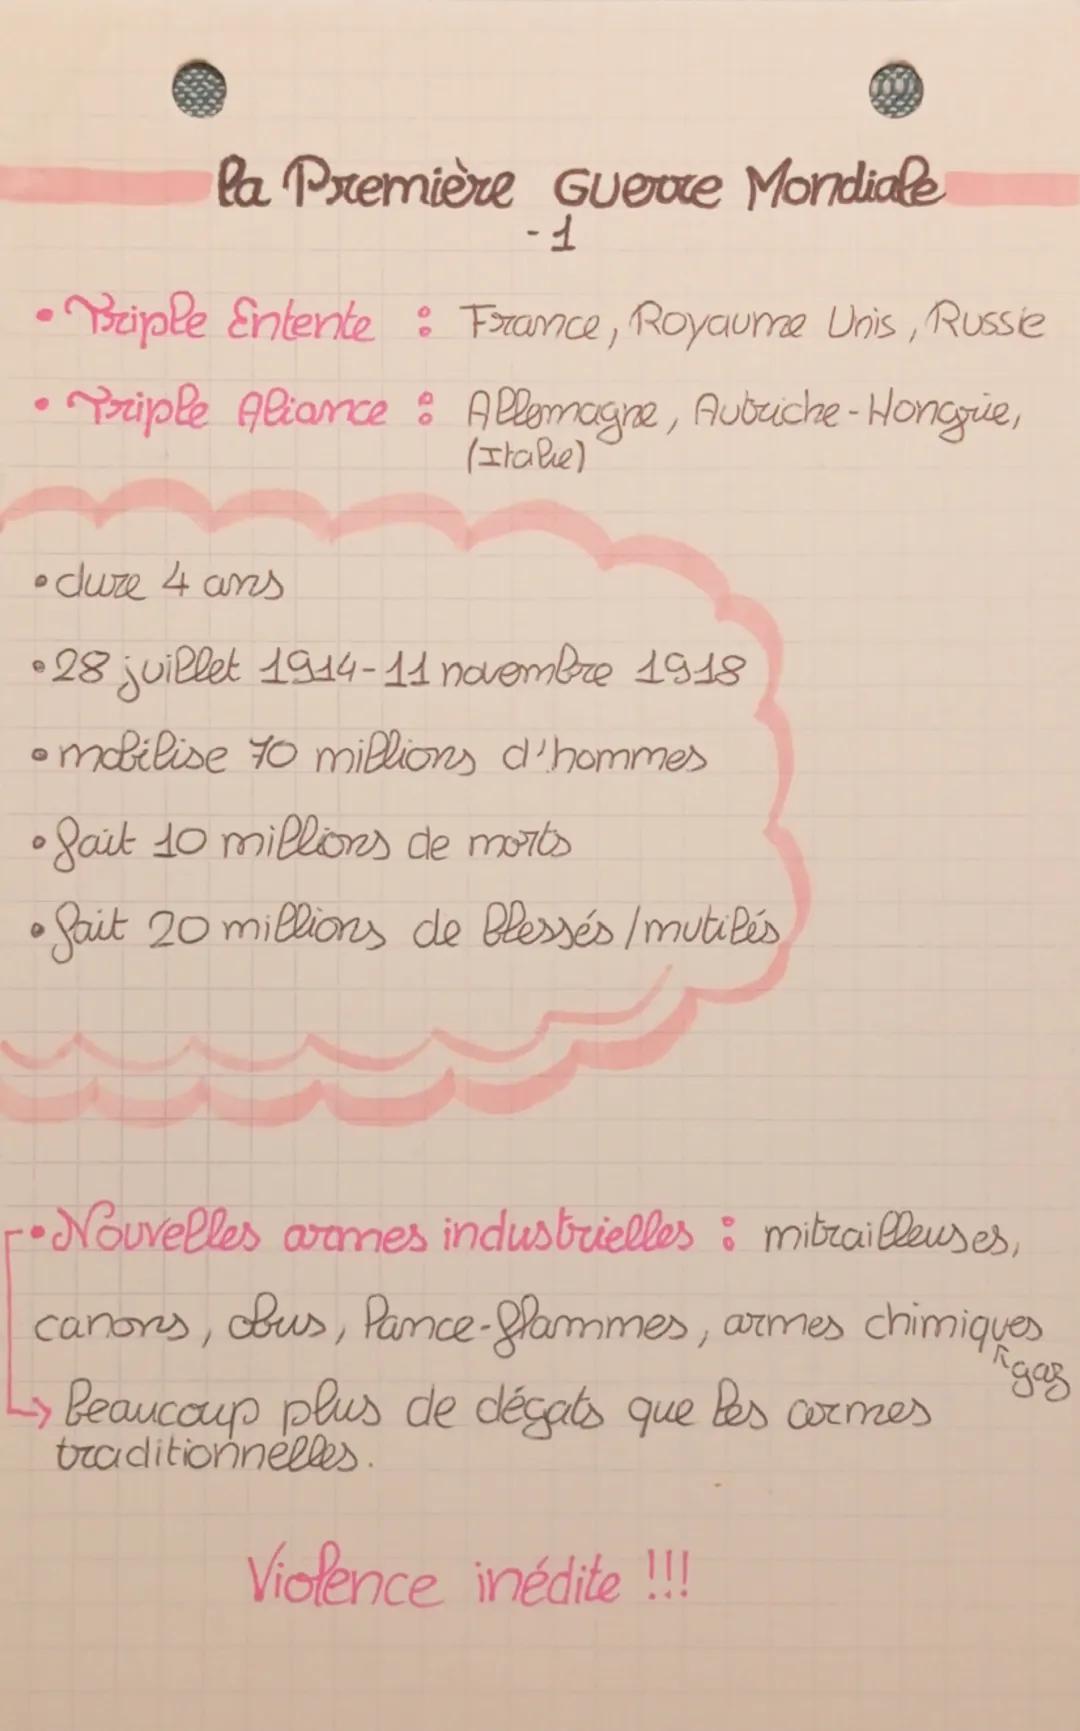 la Première Guerre Mondiale
- 1
• Triple Entente : France, Royaume Unis, Russie
• Triple Aliance : Allemagne, Autriche-Hongrie,
(Italie)
• dure 4 ans
• 28 juillet 1914-11 novembre 1918
• mobilise 70 millions d'hommes
• fait 10 millions de morts
• fait 20 millions de blessés/mutilés
• Nouvelles armes industrielles : mitrailleuses,
canons, obus, lance-flammes, armes chimiques
↑gaz
↳ beaucoup plus de dégats que les armes
traditionnelles.
Violence inédite !!!